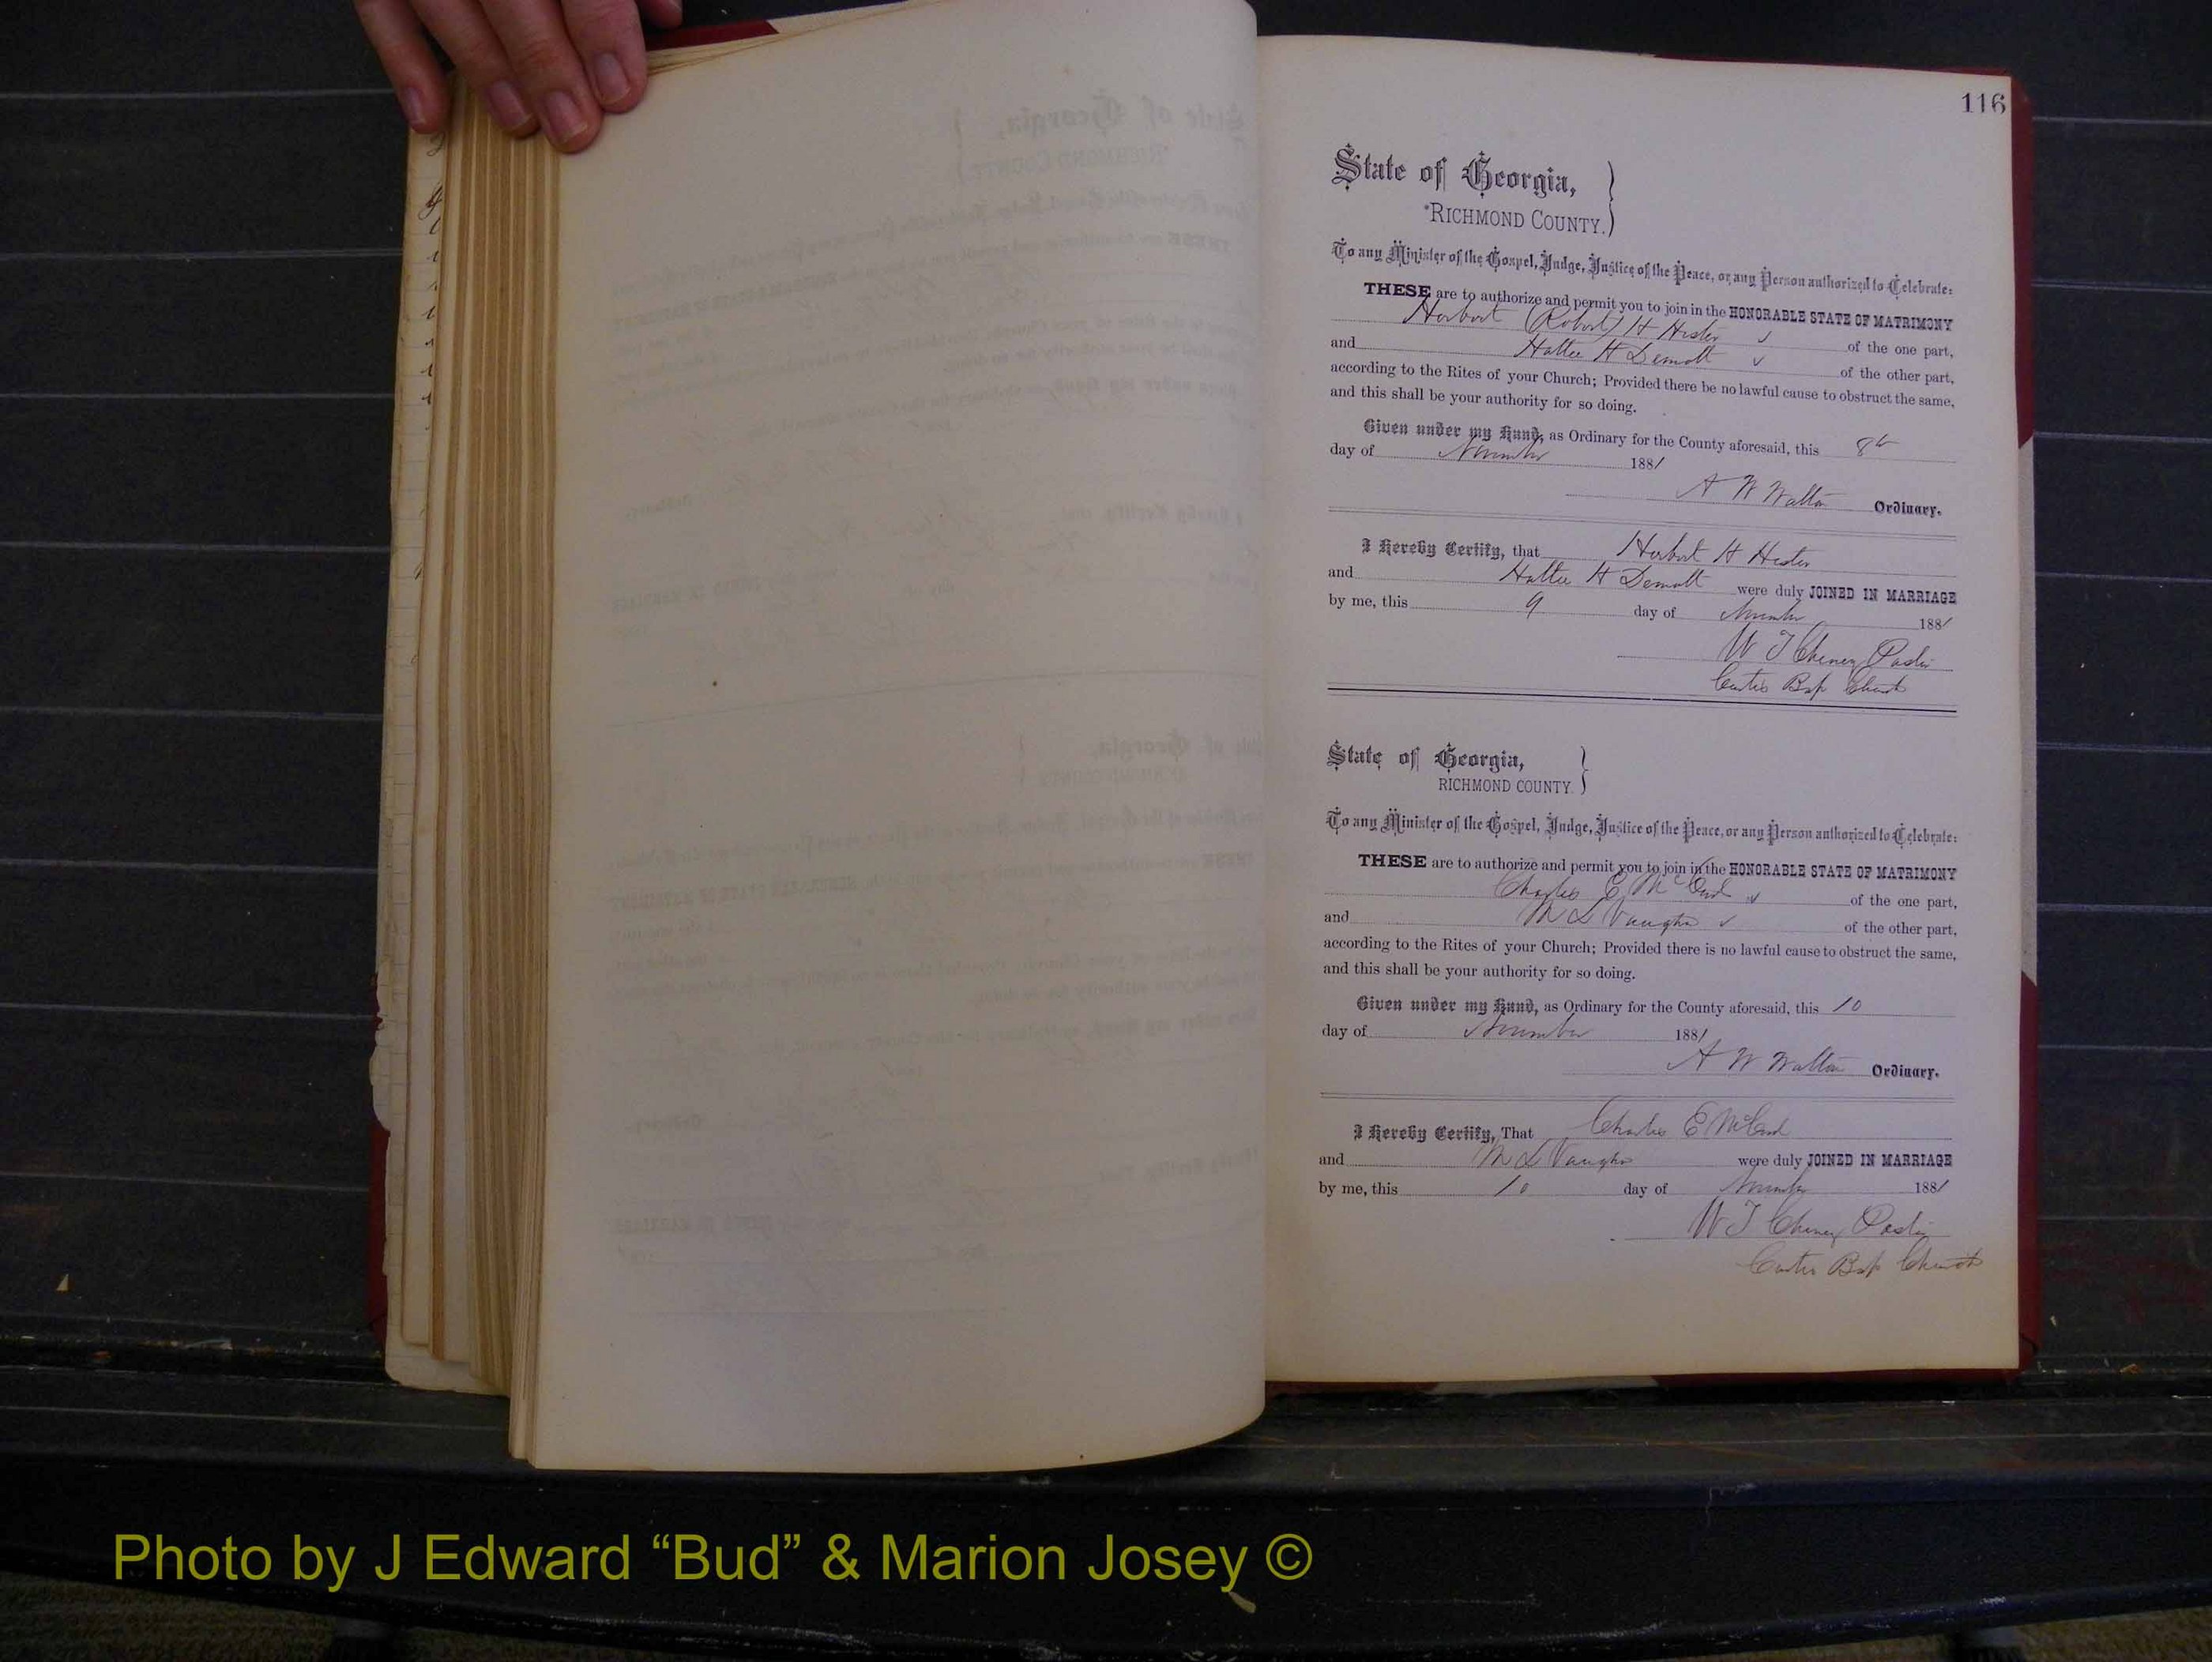 116
State of Georgia,
RICHMOND COUNTY.
To any Minister of the Gospel, Judge, Justice of the Peace, or any Person authorized to Celebrate:
THESE are to authorize and permit you to join in the HONORABLE STATE OF MATRIMONY
Herbert (Robert) H Hester of the one part,
and Hattie H Demott of the other part,
according to the Rites of your Church; Provided there be no lawful cause to obstruct the same,
and this shall be your authority for so doing.
Given under my Hand, as Ordinary for the County aforesaid, this 8th
day of November 1881
A W Walton Ordinary.
I Hereby Certify, that Herbert H Hester
and Hattie H Demott were duly JOINED IN MARRIAGE
by me, this 9 day of November 1881
W T Cheney Pastor
Curtis Bap Church
State of Georgia,
RICHMOND COUNTY.
To any Minister of the Gospel, Judge, Justice of the Peace, or any Person authorized to Celebrate:
THESE are to authorize and permit you to join in the HONORABLE STATE OF MATRIMONY
Charles E. McCord of the one part,
and M L Vaughn of the other part,
according to the Rites of your Church; Provided there is no lawful cause to obstruct the same,
and this shall be your authority for so doing.
Given under my Hand, as Ordinary for the County aforesaid, this 10
day of November 1881
A W Walton Ordinary.
I Hereby Certify, That Charles E McCord
and M L Vaughn were duly JOINED IN MARRIAGE
by me, this 10 day of November 1881
W T Cheney Pastor
Curtis Bap Church
Photo by J Edward “Bud” & Marion Josey ©